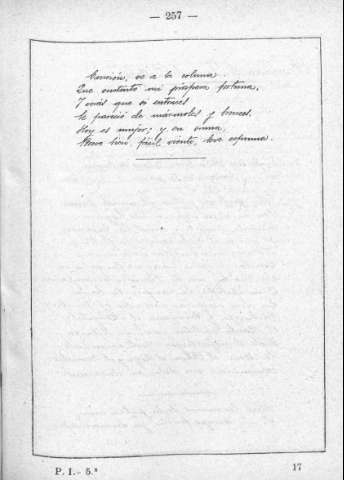 — 257 —
Canción, ve a la coluna
Que sustentó mi próspera fortuna,
Y verás que si entonces
Te pareció de mármoles y bronces,
Hoy es mujer; y en suma
Breve bien, fácil viento, leve espuma.
P. I.- 5.ª
17